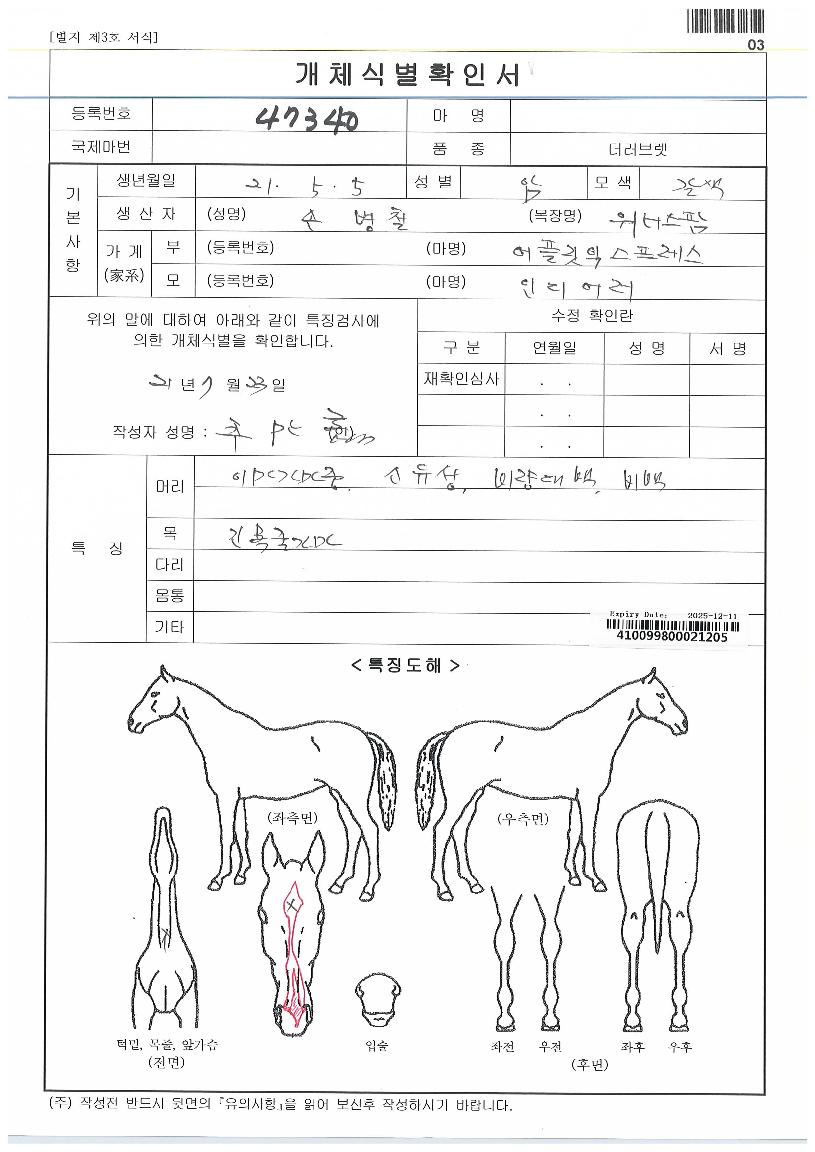 [별지 제3호 서식]
03
개체식별확인서
등록번호 47340 마 명
국제마번 품 종 더러브렛
기본사항
생년월일 21. 5. 5 성 별 암 모 색 갈색
생 산 자 (성명) 손 병 철 (목장명) 위너스팜
가 계 (家系)
부 (등록번호) (마명) 어플릿익스프레스
모 (등록번호) (마명) 인디어러
위의 말에 대하여 아래와 같이 특징검시에
의한 개체식별을 확인합니다.
21 년 7 월 23 일
작성자 성명 :
수정 확인란
구 분 연월일 성 명 서 명
재확인심사 . .
. .
. .
특 징
머리 유성, 비량대백, 비백
목
다리
몸통
기타
Expiry Date: 2025-12-11
410099800021205
< 특징도해 >
(좌측면) (우측면)
턱밑, 목줄, 앞가슴
(전면)
입술
좌전 우전 좌후 우후
(후면)
(주) 작성전 반드시 뒷면의 『유의사항』을 읽어 보신후 작성하시기 바랍니다.